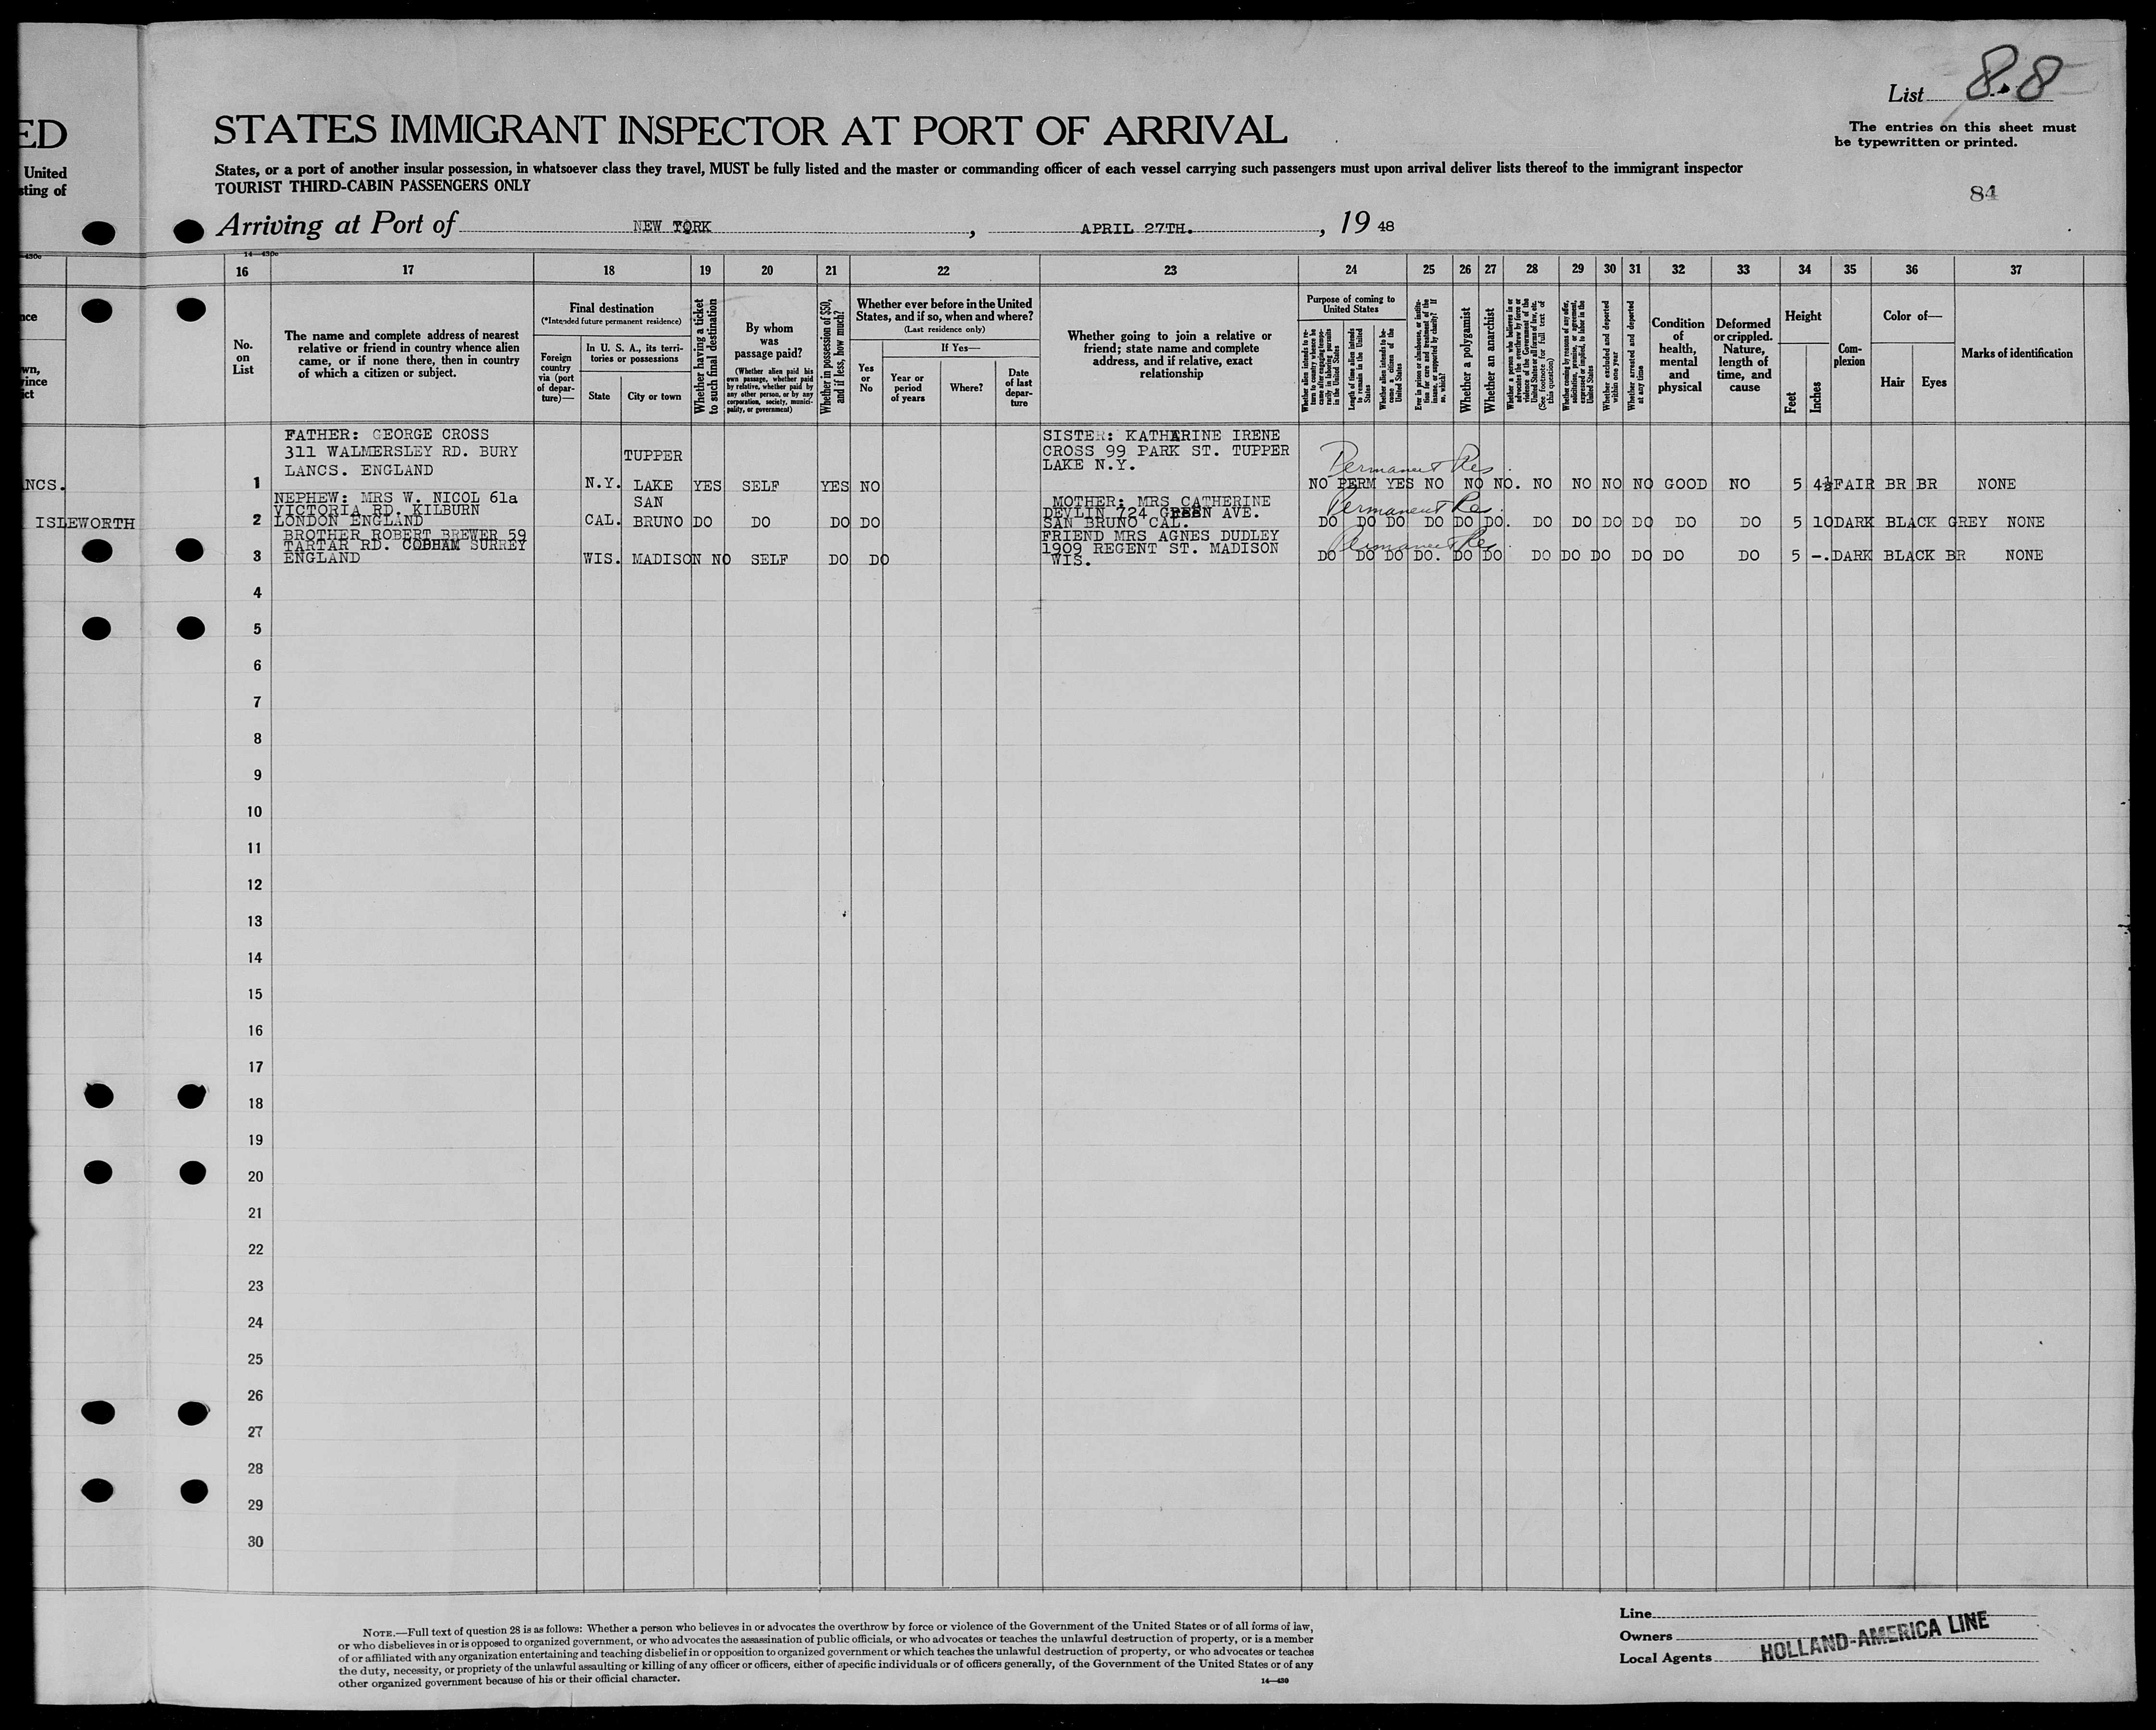 List 8.8
The entries on this sheet must
be typewritten or printed.
84
ED
STATES IMMIGRANT INSPECTOR AT PORT OF ARRIVAL
United
sting of
States, or a port of another insular possession, in whatsoever class they travel, MUST be fully listed and the master or commanding officer of each vessel carrying such passengers must upon arrival deliver lists thereof to the immigrant inspector
TOURIST THIRD-CABIN PASSENGERS ONLY
Arriving at Port of NEW YORK, APRIL 27TH., 19 48
14—430c
16 17 18 19 20 21 22 23 24 25 26 27 28 29 30 31 32 33 34 35 36 37
No.
on
List
The name and complete address of nearest
relative or friend in country whence alien
came, or if none there, then in country
of which a citizen or subject.
Final destination
(*Intended future permanent residence)
Foreign
country
via (port
of depar-
ture)—
In U. S. A., its terri-
tories or possessions
State
City or town
Whether having a ticket
to such final destination
By whom
was
passage paid?
(Whether alien paid his
own passage, whether paid
by relative, whether paid by
any other person, or by any
corporation, society, munici-
pality, or government)
Whether in possession of $50,
and if less, how much?
Whether ever before in the United
States, and if so, when and where?
(Last residence only)
Yes
or
No
If Yes—
Year or
period
of years
Where?
Date
of last
depar-
ture
Whether going to join a relative or
friend; state name and complete
address, and if relative, exact
relationship
Purpose of coming to
United States
Whether alien intends to re-
turn to country whence he
came after engaging tempo-
rarily in laboring pursuits
in the United States
Length of time alien intends
to remain in the United
States
Whether alien intends to be-
come a citizen of the
United States
Ever in prison or almshouse, or institu-
tion for care and treatment of the
insane, or supported by charity? If
so, which?
Whether a polygamist
Whether an anarchist
Whether a person who believes in or
advocates the overthrow by force or
violence of the Government of the
United States or all forms of law, etc.
(See footnote for full text of
this question)
Whether coming by reasons of any offer,
solicitation, promise, or agreement,
expressed or implied, to labor in the
United States
Whether excluded and deported
within one year
Whether arrested and deported
at any time
Condition
of
health,
mental
and
physical
Deformed
or crippled.
Nature,
length of
time, and
cause
Height
Feet
Inches
Com-
plexion
Color of—
Hair
Eyes
Marks of identification
FATHER: GEORGE CROSS
311 WALMERSLEY RD. BURY
LANCS. ENGLAND
SISTER: KATHARINE IRENE
CROSS 99 PARK ST. TUPPER
LAKE N.Y.
Permanent Res.
TUPPER
NCS. 1 N.Y. LAKE YES SELF YES NO NO PERM YES NO NO NO. NO NO NO NO GOOD NO 5 4½ FAIR BR BR NONE
NEPHEW: MRS W. NICOL 61a
VICTORIA RD. KILBURN
LONDON ENGLAND
MOTHER: MRS CATHERINE
DEVLIN 724 GREEN AVE.
SAN BRUNO CAL.
Permanent Res.
SAN
ISLEWORTH 2 CAL. BRUNO DO DO DO DO DO DO DO DO DO DO. DO DO DO DO DO DO 5 10 DARK BLACK GREY NONE
BROTHER ROBERT BREWER 59
TARTAR RD. COBHAM SURREY
ENGLAND
FRIEND MRS AGNES DUDLEY
1909 REGENT ST. MADISON
WIS.
Permanent Res.
3 WIS. MADISON NO SELF DO DO DO DO DO DO. DO DO DO DO DO DO DO DO 5 -. DARK BLACK BR NONE
4
5
6
7
8
9
10
11
12
13
14
15
16
17
18
19
20
21
22
23
24
25
26
27
28
29
30
NOTE.—Full text of question 28 is as follows: Whether a person who believes in or advocates the overthrow by force or violence of the Government of the United States or of all forms of law,
or who disbelieves in or is opposed to organized government, or who advocates the assassination of public officials, or who advocates or teaches the unlawful destruction of property, or is a member
of or affiliated with any organization entertaining and teaching disbelief in or opposition to organized government or which teaches the unlawful destruction of property, or who advocates or teaches
the duty, necessity, or propriety of the unlawful assaulting or killing of any officer or officers, either of specific individuals or of officers generally, of the Government of the United States or of any
other organized government because of his or their official character.
14—430
Line
Owners
Local Agents
HOLLAND-AMERICA LINE